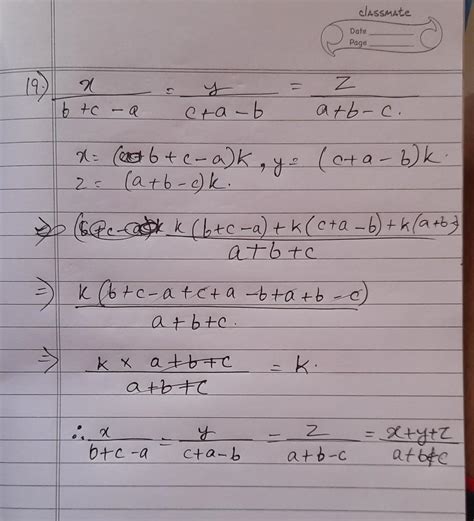 classmate
Date
Page
19.) x/(b+c-a) = y/(c+a-b) = z/(a+b-c).
x = (b+c-a)k, y = (c+a-b)k.
z = (a+b-c)k.
⇒ k(b+c-a)+k(c+a-b)+k(a+b-
a+b+c
⇒) k(b+c-a+c+a-b+a+b-c)
a+b+c.
⇒ k × a+b+c / a+b+c = k.
∴ x/(b+c-a) = y/(c+a-b) = z/(a+b-c) = x+y+z/(a+b+c)